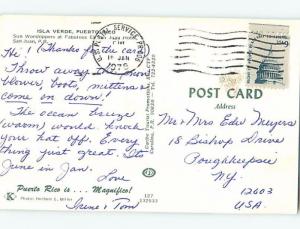 ISLA VERDE, PUERTO RICO
Sun Worshippers at Fabulous San Juan Hotel
San Juan, P.R.
Hi! Thanks for the card
Throw away the snow
blower boots, mittens &
come on down!
The ocean breeze
(warm) would knock
your hat off. Every
thing just great. It's
June in Jan.
Love
Irene & Tom
Puerto Rico is... Magnifico!
K
POSTAL SERVICE
PM
19 JAN
1979
POST CARD
Address
Mr & Mrs Edw Meyers
18 Bishop Drive
Poughkeepsie
N.Y.
12603
U.S.A.